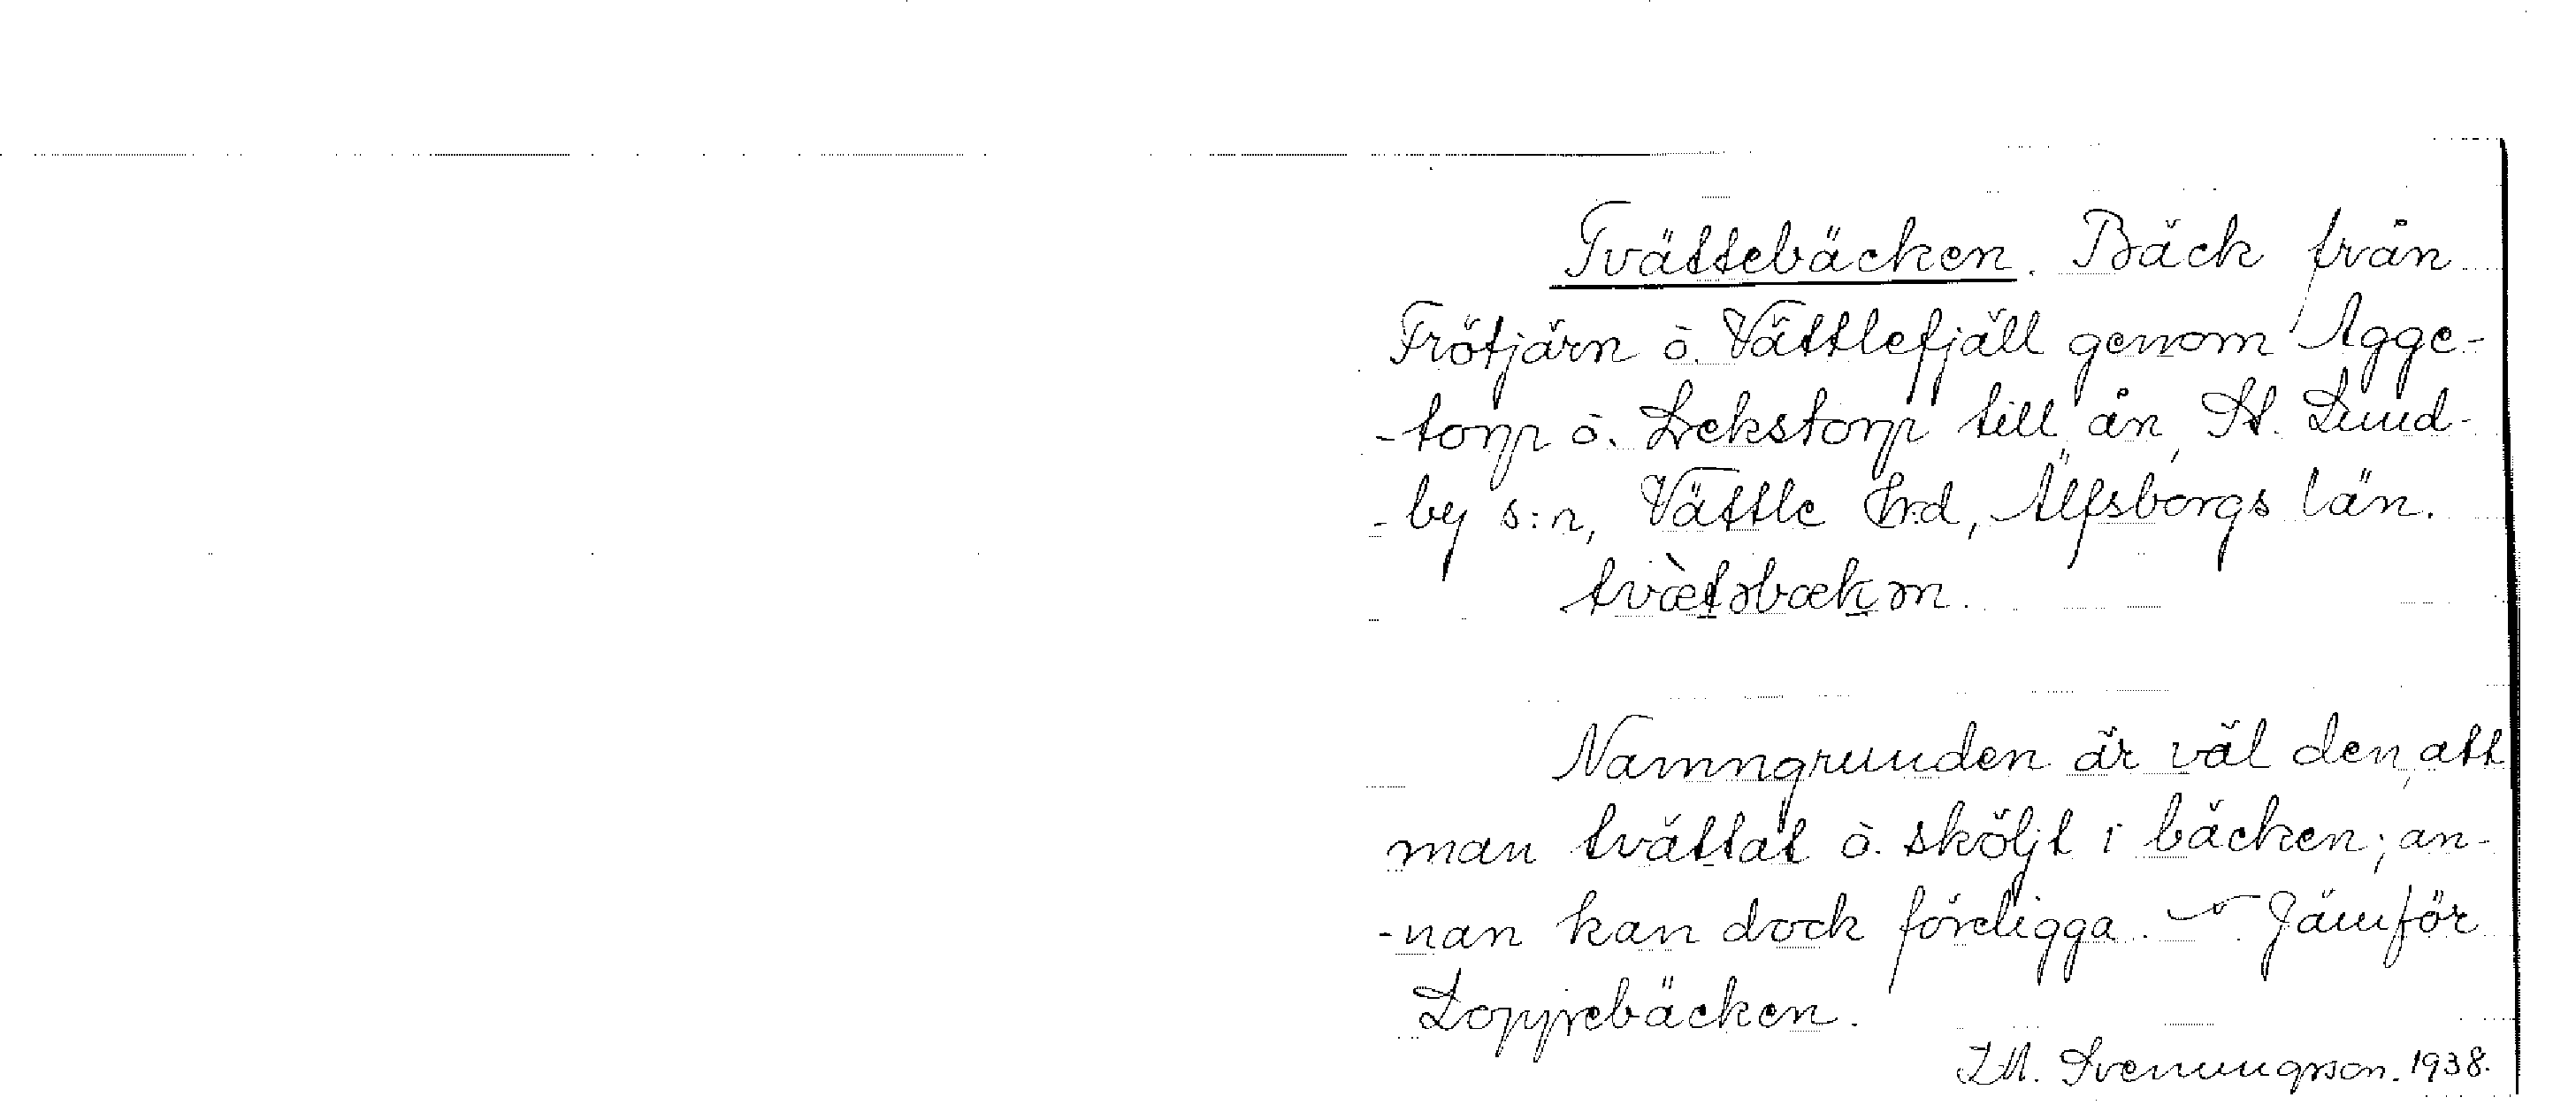 Tvättebäcken. Bäck från
Frötjärn ö. Vättlefjäll genom Agge-
-torp ö. Lekstorp till ån, St. Lund-
-by s:n, Vättle hrd, Älfsborgs län.
tvætəbækən.
Namngrunden är väl den, att
man tvättat ö. sköljt i bäcken; an-
-nan kan dock föreligga. – Jämför
Loppebäcken.
Svenungsson. 1938.